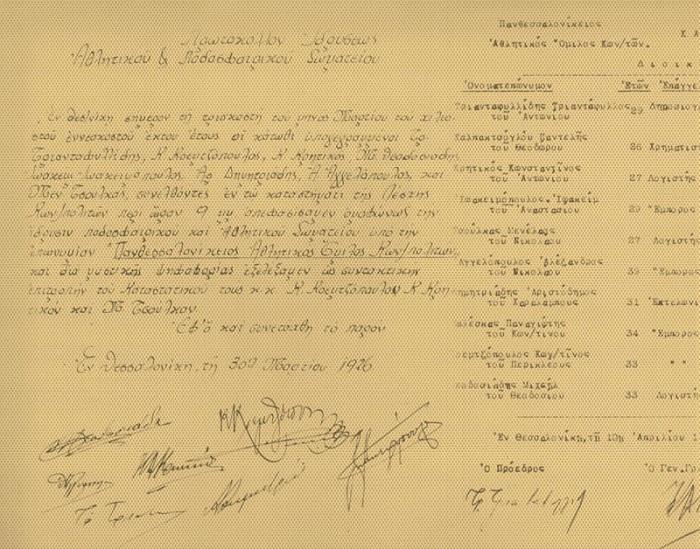 Πρωτόκολλον Ιδρύσεως
Ἀθλητικοῦ & Ποδοσφαιρικοῦ Σωματείου
Ἐν Θεσ/νίκῃ σήμερον τῇ τριακοστῇ τοῦ μηνὸς Μαρτίου τοῦ χιλιο-
στοῦ ἐννεακοστοῦ ἕκτου ἔτους οἱ κάτωθι ὑπογεγραμμένοι Τρ.
Τριανταφυλλίδης, Κ. Κρεμτζόπουλος, Κ. Κρητικός, Μ. Θεοδοσιάδης,
Ἰωακεὶμ Ἰωακειμόπουλος, Ἀρ. Δημητριάδης, Ἀ. Ἀγγελόπουλος, καὶ
Μεν. Τσούλκας, συνελθόντες ἐν τῷ καταστήματι τῆς Λέσχης
Κων/πολιτῶν περὶ ὥραν 9 μμ ἀπεφασίσαμεν ὁμοφώνως τὴν
ἵδρυσιν ποδοσφαιρικοῦ καὶ Ἀθλητικοῦ Σωματείου ὑπὸ τὴν
ἐπωνυμίαν Πανθεσσαλονίκειος Ἀθλητικὸς Ὅμιλος Κων/πολιτῶν
καὶ διὰ μυστικῆς ψηφοφορίας ἐξελέξαμεν ὡς συντακτικὴν
ἐπιτροπὴν τοῦ Καταστατικοῦ τους κ.κ. Κ. Κρεμτζόπουλον, Κ. Κρη-
τικὸν καὶ Μ. Τσούλκαν
Ἐφ' ᾧ καὶ συνετάχθη τὸ παρόν
Ἐν Θεσσαλονίκῃ, τῇ 30ῃ Μαρτίου 1926
Πανθεσσαλονίκειος
Ἀθλητικός Ὅμιλος Κων/τῶν.
Κ Α
Δ ι ο ι κ
Ὀνοματεπώνυμον Ἐτῶν Ἐπάγγε
Τριανταφυλλίδης Τριαντάφυλλος 29 Δημοσιογ
τοῦ Ἀντωνίου
Καλπακτσόγλου Παντελῆς
τοῦ Θεοδώρου 26 Χρηματισ
Κρητικός Κωνσταντῖνος
τοῦ Ἀντωνίου 27 Λογιστής
Ἰωακειμόπουλος Ἰωακείμ
τοῦ Ἀναστασίου 29 Ἔμπορος
Τσούλκας Μενέλαος
τοῦ Νικολάου 27 Λογιστή
Ἀγγελόπουλος Ἀλέξανδρος
τοῦ Νικολάου 39 Ἔμπορ
Δημητριάδης Ἀριστόδημος
τοῦ Χαραλάμπους 31 Ἐκτελωνι
Παναγιώτης
τοῦ Κων/τίνου 34 Ἔμπορος
Κρεμτζόπουλος Κων/τῖνος
τοῦ Περικλέους 33 " "
Θεοδοσιάδης Μιχαήλ
τοῦ Θεοδοσίου 33 Λογιστή
Ἐν Θεσσαλονίκῃ,τῇ 10ῃ Ἀπριλίου 1
Ὁ Πρόεδρος Ὁ Γεν.Γρ